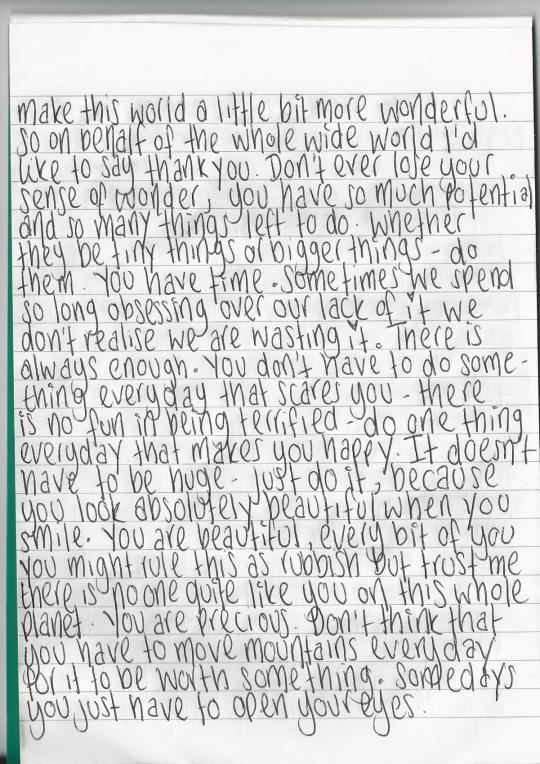 make this world a little bit more wonderful.
So on behalf of the whole wide world I'd
like to say thankyou. Don't ever lose your
sense of wonder, you have so much potential
and so many things left to do. Whether
they be tiny things or bigger things - do
them. You have time. Sometimes we spend
so long obsessing over our lack of it we
don't realise we are wasting it. There is
always enough. You don't have to do some-
thing everyday that scares you - there
is no fun in being terrified - do one thing
everyday that makes you happy. It doesn't
have to be huge - just do it, because
you look absolutely beautiful when you
smile. You are beautiful, every bit of you
you might rule this as rubbish but trust me
there is no one quite like you on this whole
planet. You are precious. Don't think that
you have to move mountains everyday
for it to be worth something. Somedays
you just have to open your eyes.